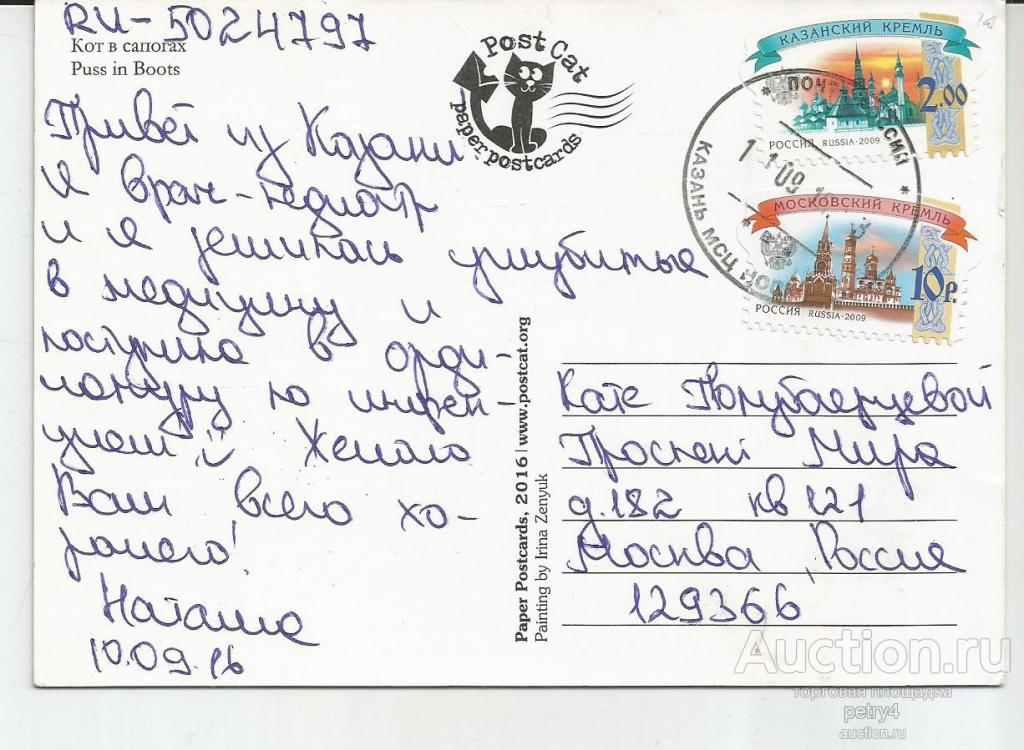 RU-5024797
Кот в сапогах
Puss in Boots
Post Cat
paper postcards
Привет из Казани!
Я врач-педиатр
и я решилась углубиться
в медицину и
поступила в орди-
натуру по инфек-
циям Желаю
Вам всего хо-
рошего!
Наташа
10.09.16
Paper Postcards, 2016 | www.postcat.org
Painting by Irina Zenyuk
КАЗАНСКИЙ КРЕМЛЬ
2.00
РОССИЯ RUSSIA·2009
МОСКОВСКИЙ КРЕМЛЬ
10р.
РОССИЯ RUSSIA·2009
КАЗАНЬ МСЦ
Кате
Проспект Мира
д.182 кв 121
Москва, Россия
129366
Auction.ru
торговая площадка
petry4
auction.ru